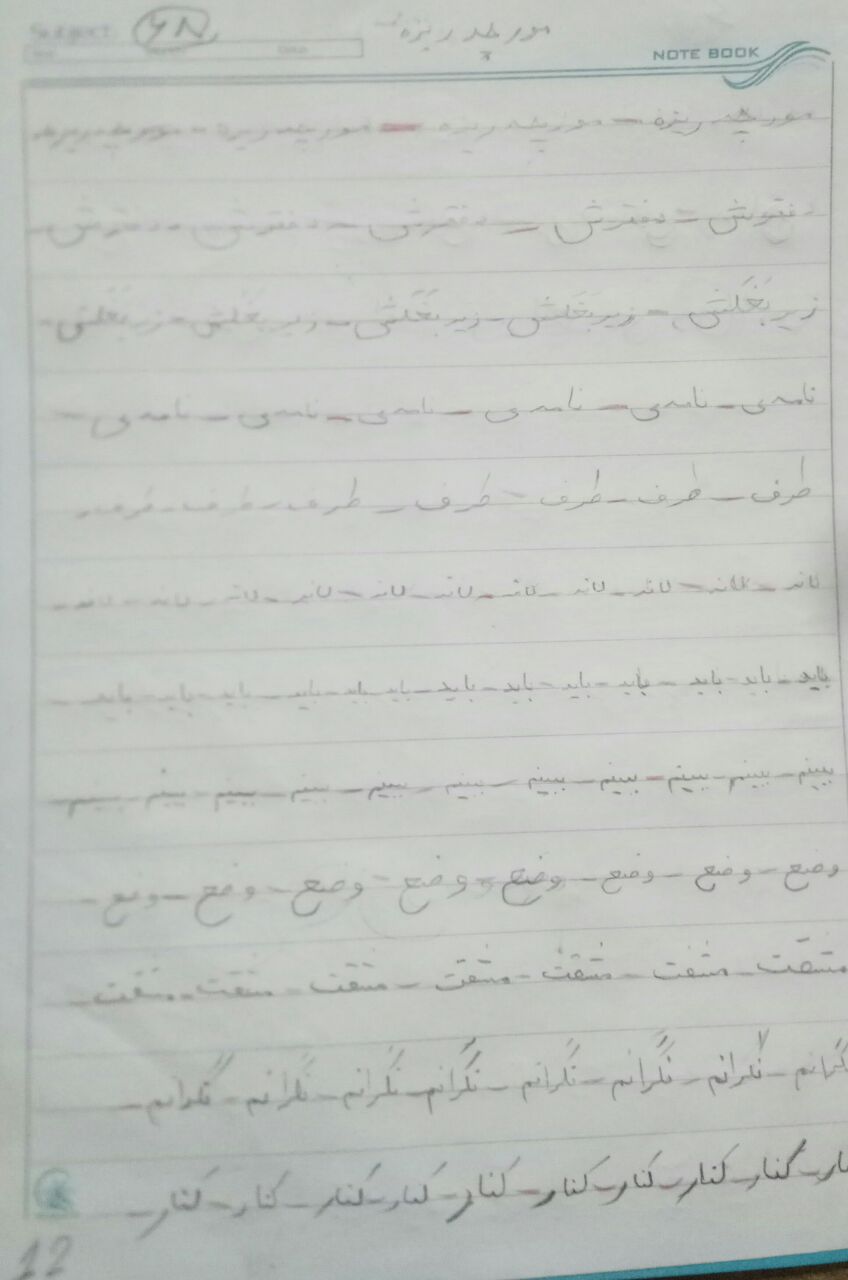 Subject: YN مورچه ریزه
NOTE BOOK
مورچه ریزه - مورچه ریزه - مورچه ریزه - مورچه ریزه
دفترش - دفترش - دفترش - دفترش - دفترش
زیر بَغَلَش - زیر بَغَلَش - زیر بَغَلَش - زیر بَغَلَش - زیر بَغَلَش
نامه‌ی - نامه‌ی - نامه‌ی - نامه‌ی - نامه‌ی - نامه‌ی
طرف - طرف - طرف - طرف - طرف - طرف - طرف
لانه - لانه - لانه - لانه - لانه - لانه - لانه - لانه - لانه - لانه
باید - باید - باید - باید - باید - باید - باید - باید - باید - باید - باید - باید - باید
ببینم - ببینم - ببینم - ببینم - ببینم - ببینم - ببینم - ببینم - ببینم - ببینم
وضع - وضع - وضع - وضع - وضع - وضع - وضع - وضع
مشقت - مشقت - مشقت - مشقت - مشقت - مشقت - مشقت
نگرانم - نگرانم - نگرانم - نگرانم - نگرانم - نگرانم - نگرانم - نگرانم
کنار - کنار - کنار - کنار - کنار - کنار - کنار - کنار - کنار - کنار
12